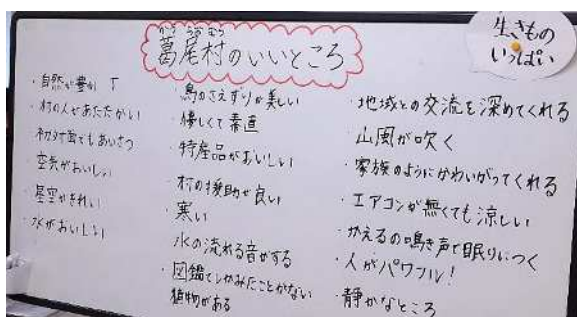 かつらおむら
葛尾村のいいところ
生きもの
いっぱい
・自然が豊か
・村の人があたたかい
・初対面でもあいさつ
・空気がおいしい
・星空がきれい
・水がおいしい
・鳥のさえずりが美しい
・優しくて素直
・特産品がおいしい
・村の援助が良い
・寒い
・水の流れる音がする
・図鑑でしかみたことがない
植物がある
・地域との交流を深めてくれる
・山風が吹く
・家族のようにかわいがってくれる
・エアコンが無くても涼しい
・かえるの鳴き声で眠りにつく
・人がパワフル!
・静かなところ